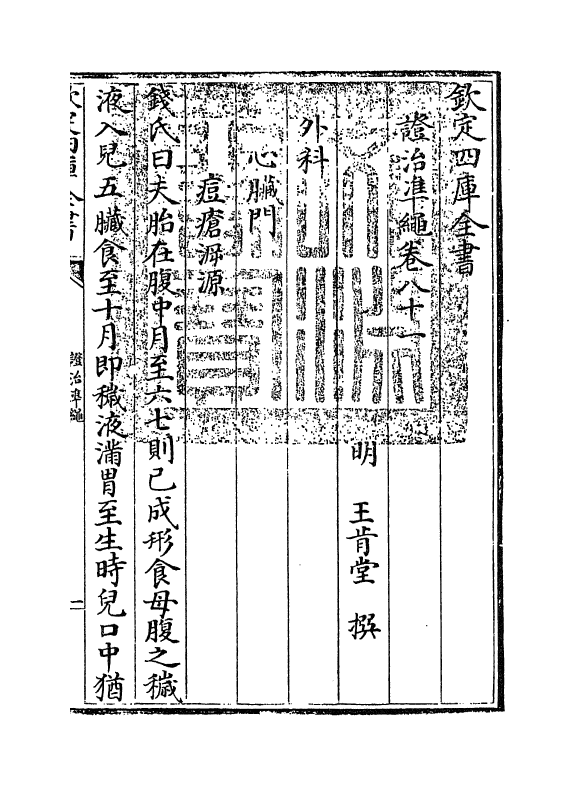 欽定四庫全書
證治準繩卷八十一
明 王肯堂 撰
外科
心臟門
痘瘡溯源
錢氏曰夫胎在腹中月至六七則已成形食母腹之穢
液入兒五臟食至十月即穢液滿胃至生時兒口中猶
欽定四庫全書
證治準繩